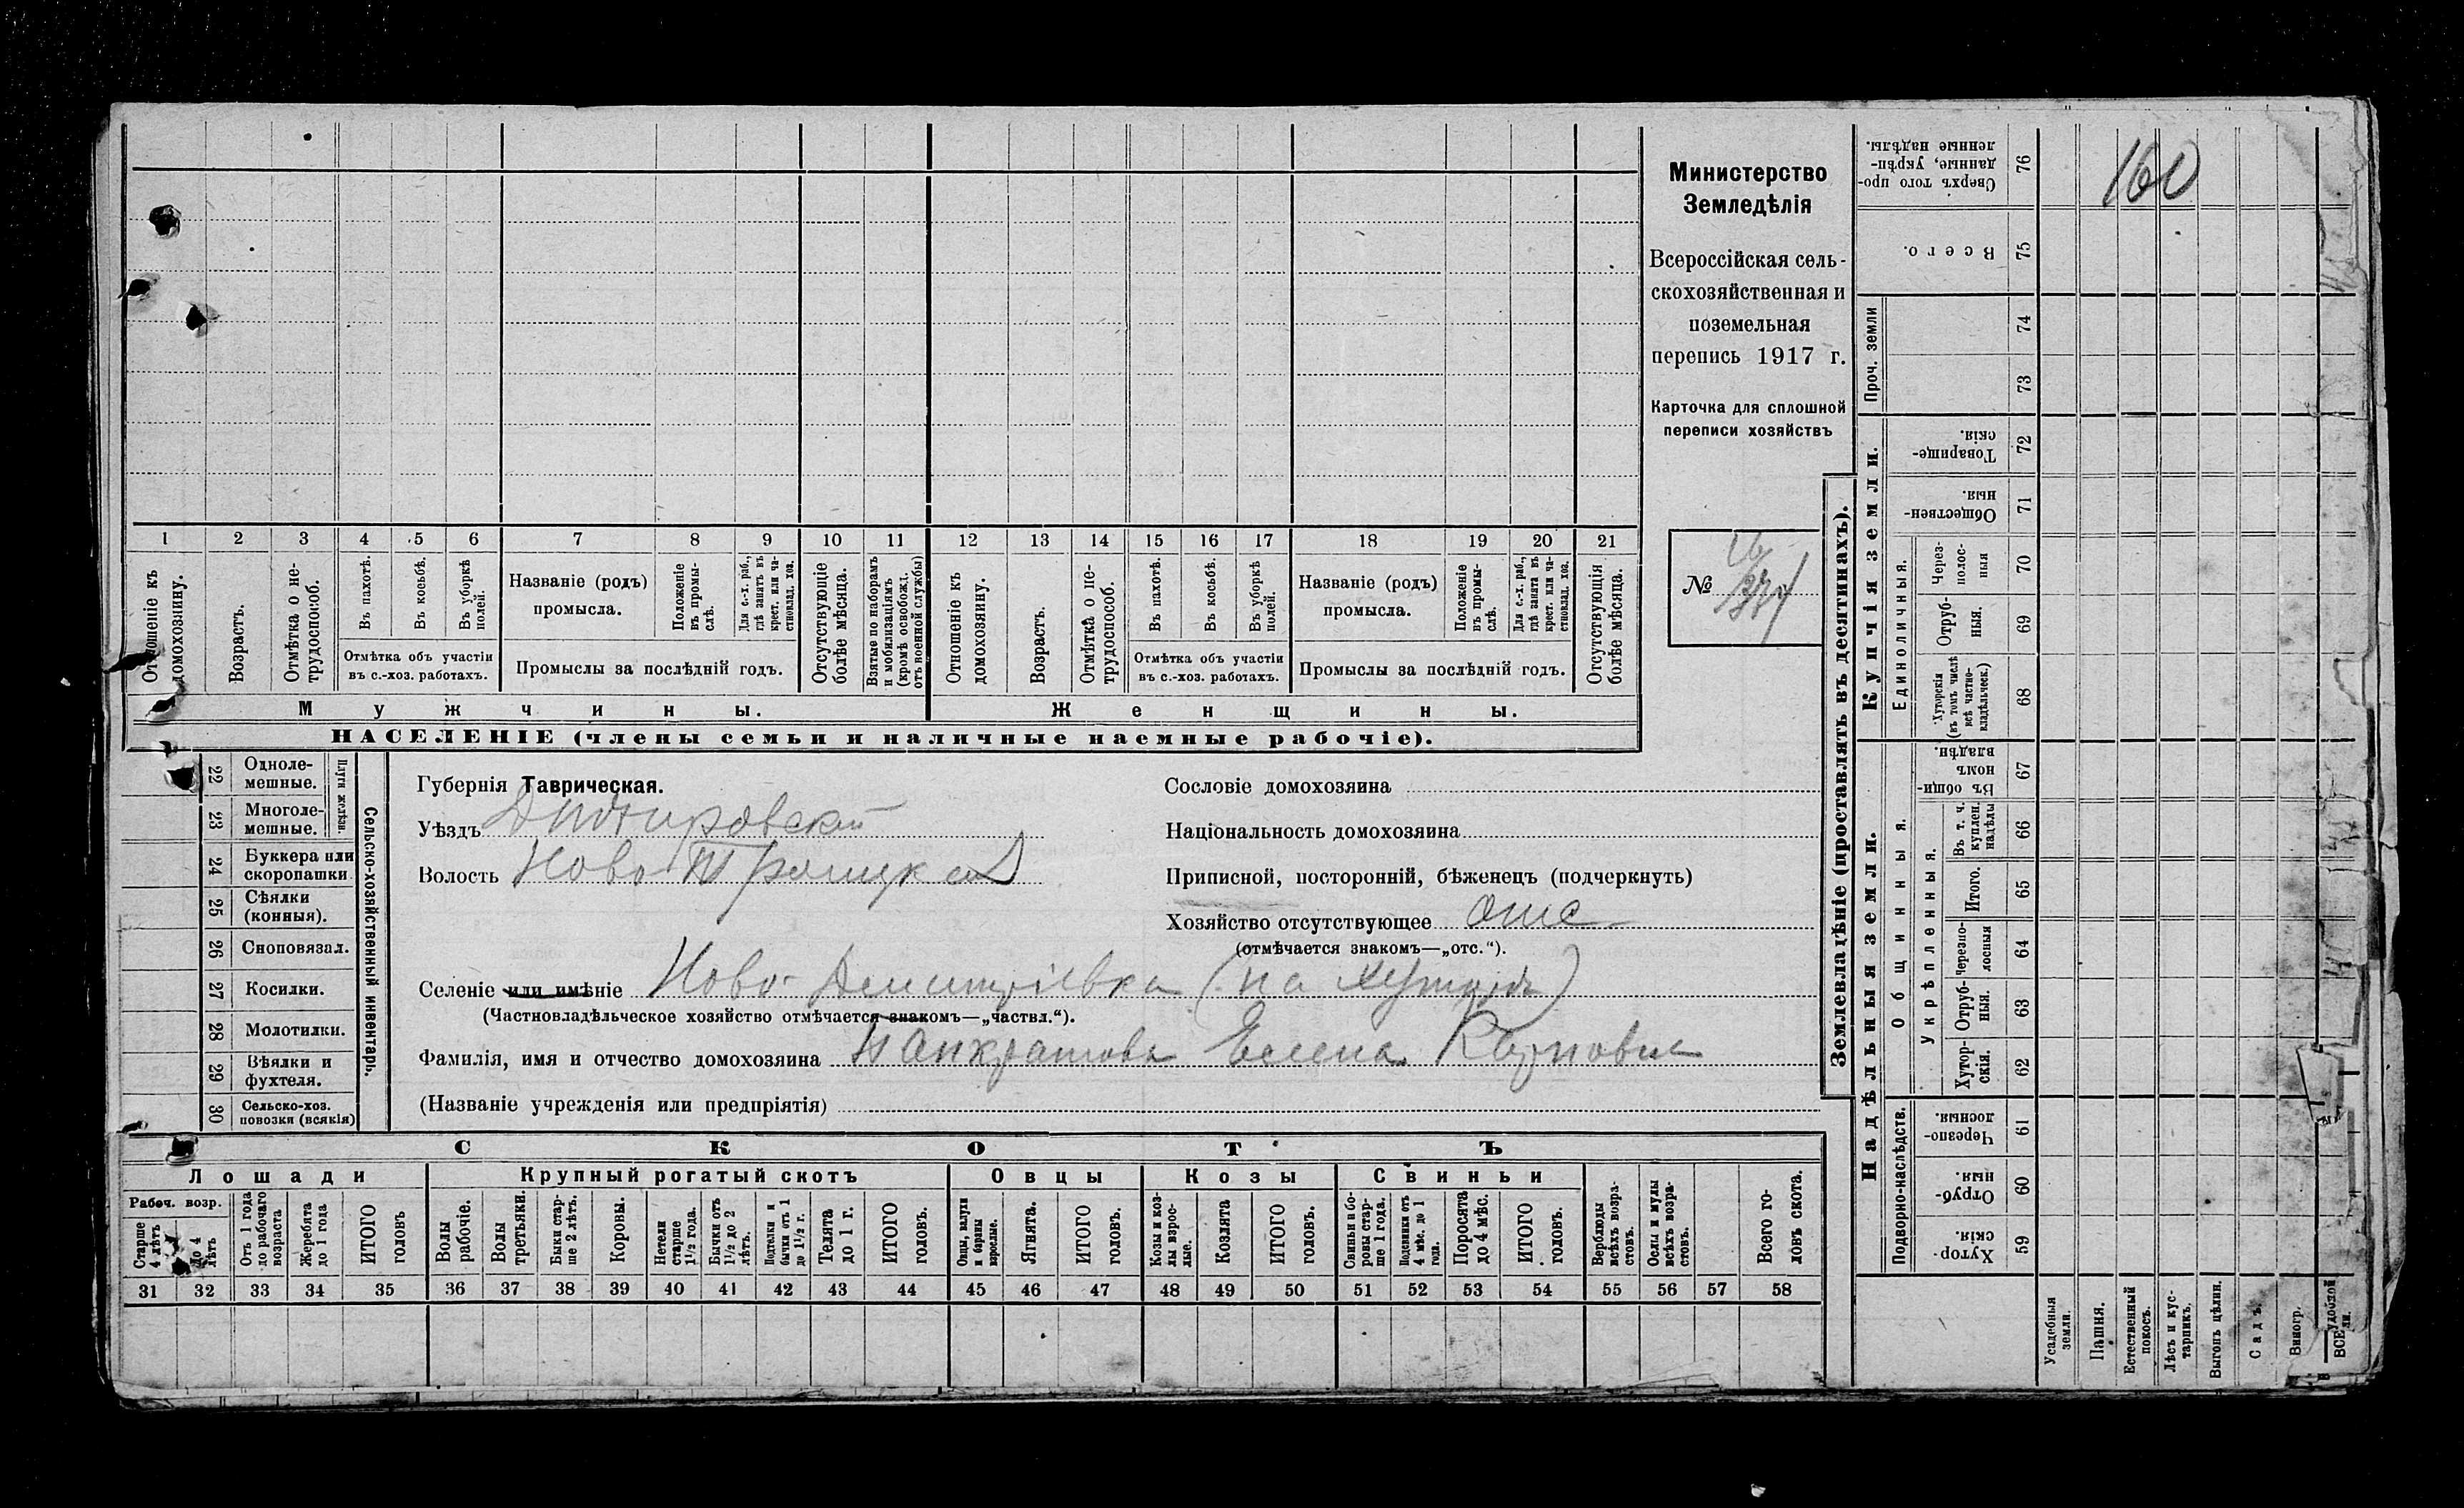 1 2 3 4 5 6 7 8 9 10 11 12 13 14 15 16 17 18 19 20 21
Отношеніе къ домохозяину.
Возрастъ.
Отмѣтка о не-
трудоспособ.
Въ пахотѣ.
Въ косьбѣ.
Въ уборкѣ
полей.
Отмѣтка объ участіи
въ с.-хоз. работахъ.
Названіе (родъ)
промысла.
Положеніе
въ промы-
слѣ.
Для с.-х. раб.,
гдѣ занятъ въ
крест. или ча-
стновлад. хоз.
Промыслы за послѣдній годъ.
Отсутствующіе
болѣе мѣсяца.
Взятые по наборамъ
и мобилизаціямъ
(кромѣ освобожд.
отъ военной службы)
Отношеніе къ
домохозяину.
Возрастъ.
Отмѣтка о не-
трудоспособ.
Въ пахотѣ.
Въ косьбѣ.
Въ уборкѣ
полей.
Отмѣтка объ участіи
въ с.-хоз. работахъ.
Названіе (родъ)
промысла.
Положеніе
въ промы-
слѣ.
Для с.-х. раб.,
гдѣ занята въ
крест. или ча-
стновлад. хоз.
Промыслы за послѣдній годъ.
Отсутствующія
болѣе мѣсяца.
Мужчины.
Женщины.
НАСЕЛЕНІЕ (члены семьи и наличные наемные рабочіе).
Министерство
Земледѣлія
Всероссійская сель-
скохозяйственная и
поземельная
перепись 1917 г.
Карточка для сплошной
переписи хозяйствъ
№
22 Одноле-
мешные.
23 Многоле-
мешные.
Плуги желѣзн.
24 Буккера или
скоропашки
25 Сѣялки
(конныя).
26 Сноповязал.
27 Косилки.
28 Молотилки.
29 Вѣялки и
фухтеля.
30 Сельско-хоз.
повозки (всякія)
Сельско-хозяйственный инвентарь.
Губернія Таврическая.
Уѣздъ Днѣпровскій
Волость Ново Троицкая
Сословіе домохозяина
Національность домохозяина
Приписной, посторонній, бѣженецъ (подчеркнуть)
Хозяйство отсутствующее отс
(отмѣчается знакомъ—„отс.“).
Селеніе или имѣніе Ново-Дмитріевка (на хуторѣ)
(Частновладѣльческое хозяйство отмѣчается знакомъ—„частвл.“).
Фамилія, имя и отчество домохозяина Панкратова Елена Карповна
(Названіе учрежденія или предпріятія)
СКОТЪ
Лошади
Крупный рогатый скотъ
Овцы
Козы
Свиньи
Рабоч. возр.
Старше
4 лѣтъ
До 4
лѣтъ
Отъ 1 года
до рабочаго
возраста
Жеребята
до 1 года
ИТОГО
головъ
Волы
рабочіе.
Волы
третьяки.
Быки стар-
ше 2 лѣтъ.
Коровы.
Нетели
старше
1½ года.
Бычки отъ
1½ до 2
лѣтъ.
Подтелки и
бычки отъ 1
до 1½ г.
Телята
до 1 г.
ИТОГО
головъ.
Овцы, валухи
и бараны
взрослые.
Ягнята.
ИТОГО
головъ.
Козы и коз-
лы взрос-
лые.
Козлята
ИТОГО
головъ.
Свиньи и бо-
ровы стар-
ше 1 года.
Подсвинки отъ
4 мѣс. до 1
года.
Поросята
до 4 мѣс.
ИТОГО
головъ.
Верблюды
всѣхъ возра-
стовъ.
Ослы и мулы
всѣхъ возра-
стовъ.
Всего го-
ловъ скота.
31 32 33 34 35 36 37 38 39 40 41 42 43 44 45 46 47 48 49 50 51 52 53 54 55 56 57 58
Землевладѣніе (проставлять въ десятинахъ).
Купчія земли.
Надѣльныя земли.
Проч. земли
Единоличныя.
Общинныя.
Укрѣпленныя.
Подворно-наслѣдств.
Сверхъ того про-
данные, укрѣп-
ленные надѣлы. 76
160
Всего. 75
74
73
Товарище-
скія. 72
Обществен-
ныя. 71
Через-
полос-
ныя 70
Отруб-
ныя. 69
Хуторскія
(въ томъ числѣ
всѣ частно-
владѣльческ.) 68
Въ общин-
номъ
владѣн. 67
Въ т. ч.
куплен.
надѣлы 66
Итого. 65
Черезпо-
лосныя 64
Отруб-
ныя. 63
Хутор-
скія. 62
Черезпо-
лосныя. 61
Отруб-
ныя. 60
Хутор-
скія. 59
Усадебныя
земли.
Пашня.
Естественный
покосъ.
Лѣсъ и кус-
тарникъ.
Выгонъ цѣлин.
Садъ.
Виногр.